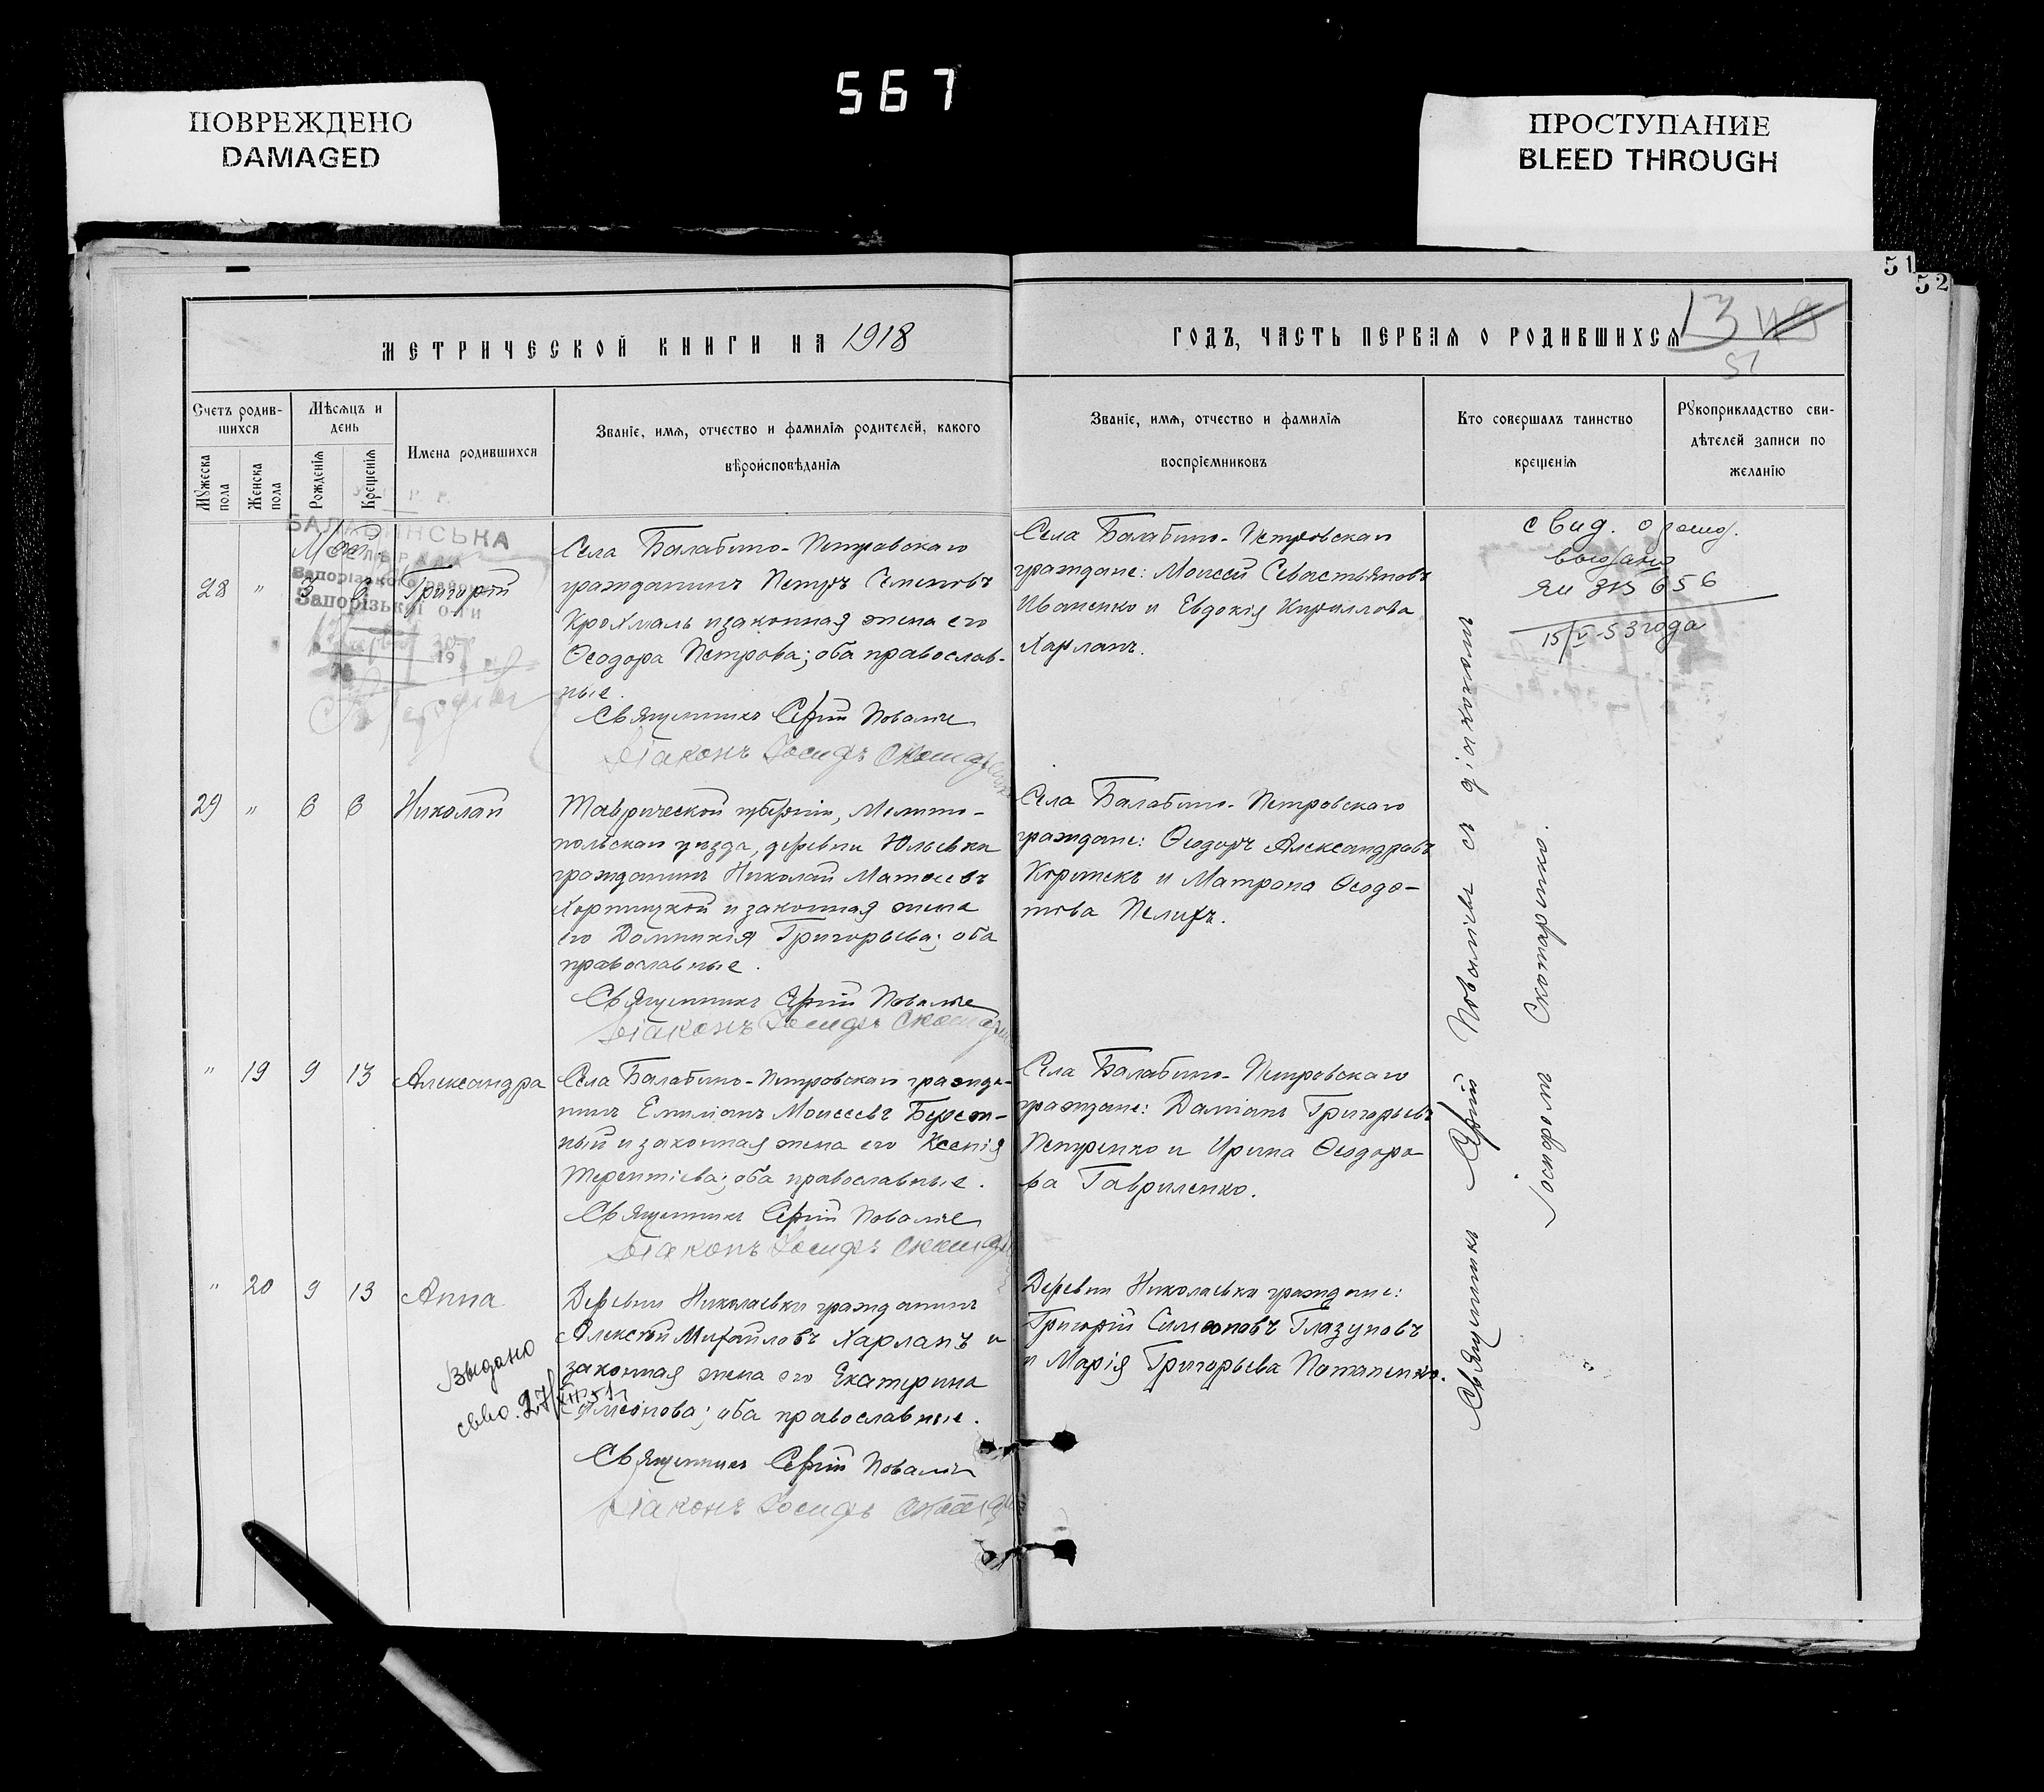 567
ПОВРЕЖДЕНО
DAMAGED
ПРОСТУПАНИЕ
BLEED THROUGH
51
52
МЕТРИЧЕСКОЙ КНИГИ НА 1918
ГОДЪ, ЧАСТЬ ПЕРВАЯ О РОДИВШИХСЯ
13
51
Счетъ родив-
шихся
Мужеска пола
Женска пола
Мѣсяцъ и
день
Рожденія
Крещенія
Имена родившихся
Званіе, имя, отчество и фамилія родителей, какого
вѣроисповѣданія
Званіе, имя, отчество и фамилія
воспріемниковъ
Кто совершалъ таинство
крещенія
Рукоприкладство сви-
дѣтелей записи по
желанію
БАЛАБИНСЬКА
СІЛЬРАДА
Запорізького району
Запорізької о-ги
19
Май.
28 " 3 6 Григорій
Села Балабино-Петровскаго
гражданинъ Петръ Семеновъ
Крохмаль и законная жена его
Ѳеодора Петрова; оба православ-
ные.
Священникъ Сергій Поваліевъ
Діаконъ Іосифъ
Села Балабино-Петровскаго
граждане: Моисей Севастьяновъ
Иваненко и Евдокія Кириллова
Харланъ.
свид. о рожд.
выдано
ЯИ ЗВ 656
15/V-53 года
29 " 6 6 Николай
Таврической губерніи, Мелито-
польскаго уѣзда, деревни Юльевки
гражданинъ Николай Матѳеевъ
Хортицкой и законная жена
его Домникія Григорьева; оба
православные.
Священникъ Сергій Поваліевъ
Діаконъ Іосифъ
Села Балабино-Петровскаго
граждане: Ѳеодоръ Александровъ
и Матрона Ѳеодо-
това Пелихъ.
" 19 9 13 Александра
Села Балабино-Петровскаго гражда-
нинъ Емиліанъ Моисеевъ Береж-
ный и законная жена его Ксенія
Терентіева; оба православные.
Священникъ Сергій Поваліевъ
Діаконъ Іосифъ
Села Балабино-Петровскаго
граждане: Даміанъ Григорьевъ
Петренко и Ирина Ѳеодоро
ва Гавриленко.
" 20 9 13 Анна
Деревни Николаевки гражданинъ
Алексѣй Михайловъ Харланъ и
законная жена его Екатерина
Симеонова; оба православные.
Священникъ Сергій Поваліевъ
Діаконъ Іосифъ
Выдано
свво. 27/XII-51г
Деревни Николаевки граждане:
Григорій Симеоновъ Глазуновъ
и Марія Григорьева Потапенко.
Священникъ Сергій Поваліевъ съ діакономъ
Іосифомъ Скотаренко.